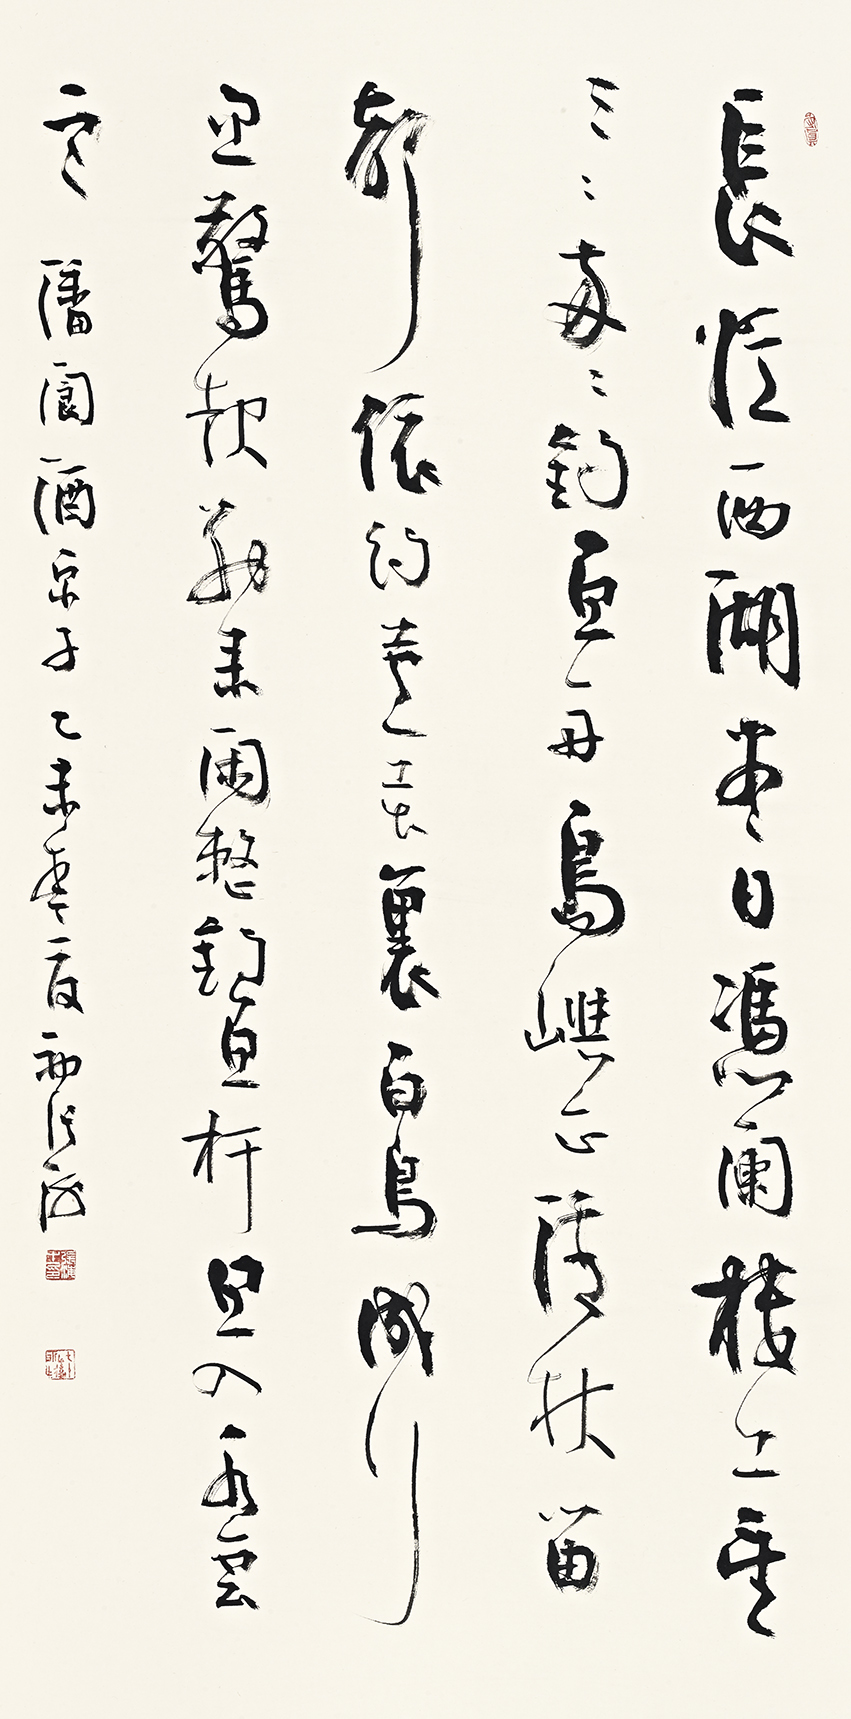 長憶西湖盡日憑闌樓上望
三〻兩〻釣魚舟島嶼正清秋笛
聲依約蘆花裏白鳥成行
忽驚起別來閑整釣魚杆思入水雲
寒 潘閬酒泉子 乙未